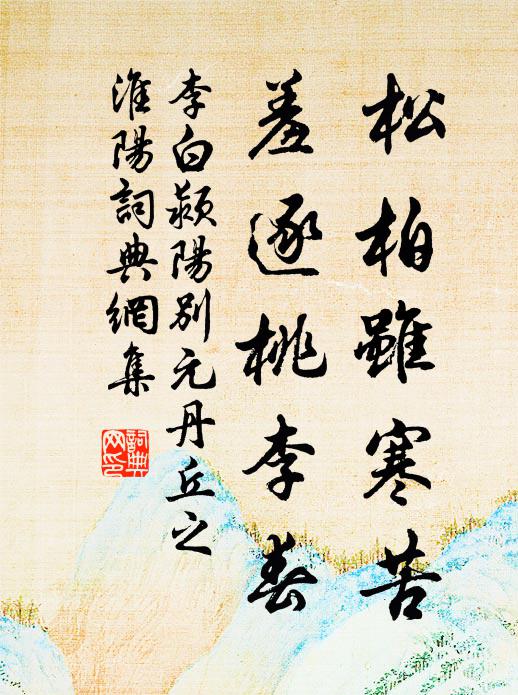 松柏雖寒苦
羞逐桃李春
李白颍陽別元丹丘之
淮陽詞典網集
詞典
网印